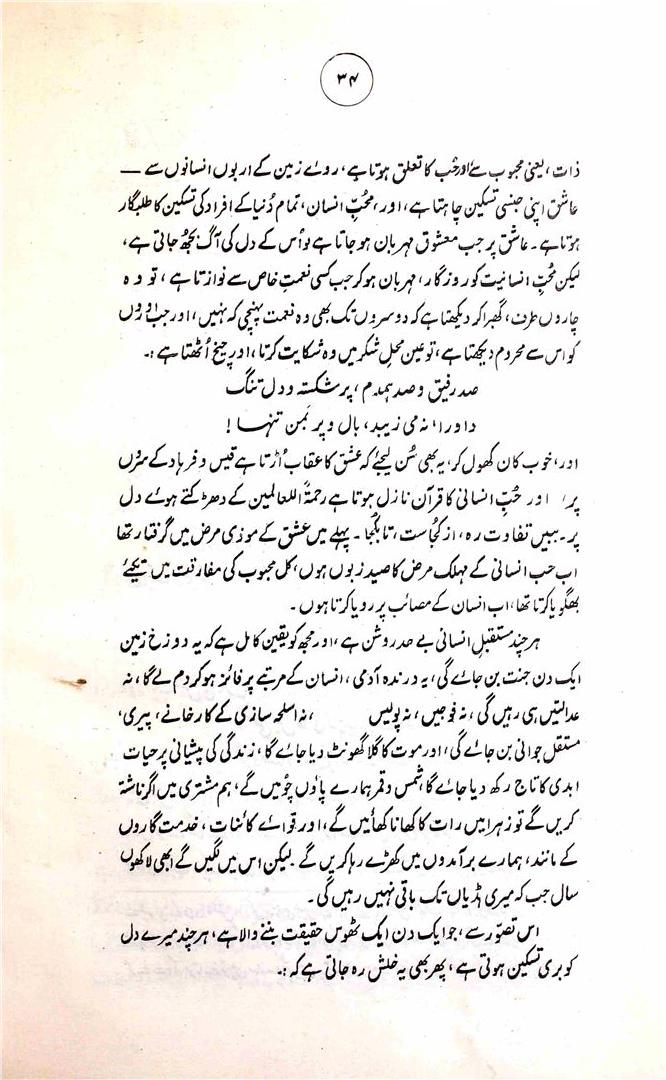 ۳۴
ذات، یعنی محبوب سے اور حُب کا تعلق ہوتا ہے، روے زمین کے اربوں انسانوں سے ——
عاشق اپنی جنسی تسکین چاہتا ہے، اور، محبِّ انسان، تمام دُنیا کے افراد کی تسکین کا طلبگار
ہوتا ہے۔ عاشق پر جب معشوق مہربان ہو جاتا ہے تو اُس کے دل کی آگ بجھ جاتی ہے،
لیکن محبِّ انسانیت کو روزگار، مہربان ہو کر جب کسی نعمتِ خاص سے نوازتا ہے، تو وہ
چاروں طرف، گھبرا کر دیکھتا ہے کہ دوسروں تک بھی وہ نعمت پہنچی کہ نہیں، اور جب اوروں
کو اس سے محروم دیکھتا ہے، تو عین محلِ شکر میں وہ شکایت کرتا، اور چیخ اُٹھتا ہے :۔
صد رفیق و صد ہمدم، پر شکستہ و دل تنگ
داورا، نہ می زیبد، بال و پر بمن تنہا!
اور، خوب کان کھول کر، یہ بھی سُن لیجئے کہ عشق کا عقاب اُڑتا ہے قیس و فرہاد کے سروں
پر، اور حُبِّ انسانی کا قرآن نازل ہوتا ہے رحمۃ اللعالمین کے دھڑکتے ہوئے دل
پر۔ ببیں تفاوت رہ، از کجاست، تا بکجا۔ پہلے میں عشق کے موذی مرض میں گرفتار تھا
اب حب انسانی کے مہلک مرض کا صید زبوں ہوں، کل محبوب کی مفارقت میں تیکئے
بھگویا کرتا تھا، اب انسان کے مصائب پر رویا کرتا ہوں۔
ہر چند مستقبلِ انسانی بے حد روشن ہے، اور مجھ کو یقین کامل ہے کہ یہ دوزخ زمین
ایک دن جنت بن جاے گی، یہ درندہ آدمی، انسان کے مرتبے پر فائز ہو کر دم لے گا، نہ
عدالتیں ہی رہیں گی، نہ فوجیں، نہ پولیس ، نہ اسلحہ سازی کے کارخانے، پیری،
مستقل جوانی بن جاے گی، اور موت کا گلا گھونٹ دیا جاے گا، زندگی کی پیشانی پر حیات
ابدی کا تاج رکھ دیا جاے گا، شمس و قمر ہمارے پاوں چومیں گے، ہم مشتری میں اگر ناشتہ
کریں گے تو زہرا میں رات کا کھانا کھائیں گے، اور قواے کائنات، خدمت گاروں
کے مانند، ہمارے برآمدوں میں کھڑے رہا کریں گے۔ لیکن اس میں لگیں گے ابھی لاکھوں
سال جب کہ میری ہڈیاں تک باقی نہیں رہیں گی۔
اس تصوّر سے، جو ایک دن ایک ٹھوس حقیقت بننے والا ہے، ہر چند میرے دل
کو بری تسکین ہوتی ہے، پھر بھی یہ خلش رہ جاتی ہے کہ :۔